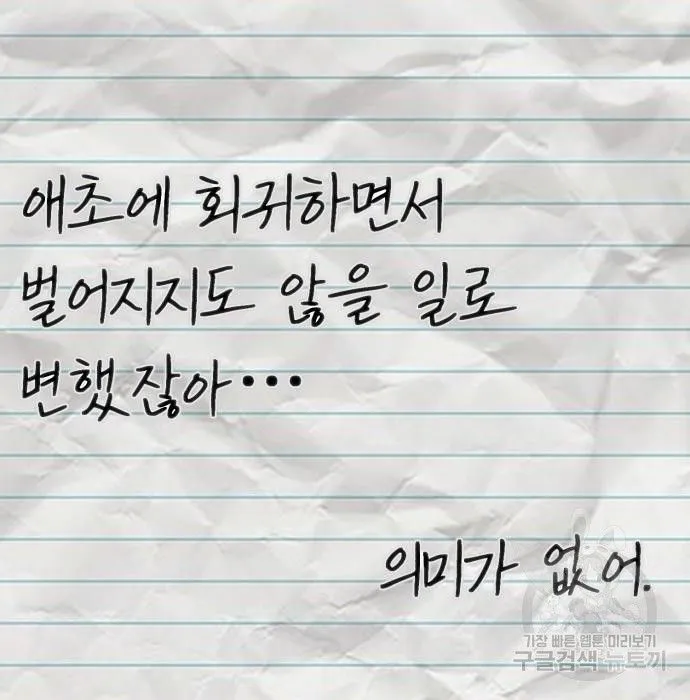 애초에 회귀하면서
벌어지지도 않을 일로
변했잖아…
의미가 없어.
가장 빠른 웹툰 미리보기
구글검색 뉴토끼